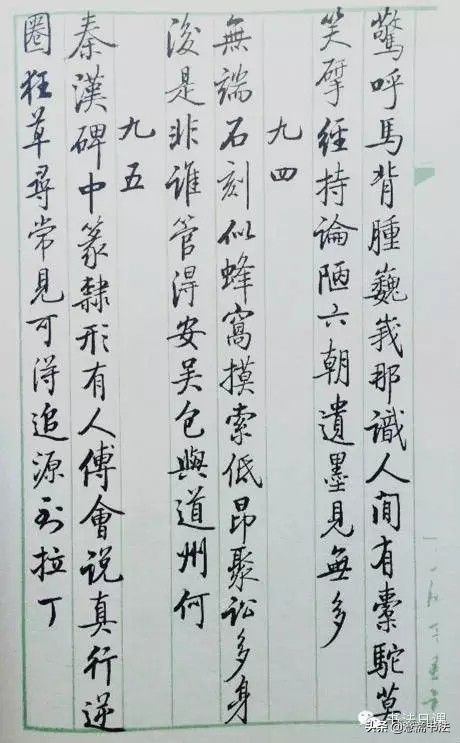 驚呼馬背腫巍峩那識人間有橐駝莫
笑揅經持論陋六朝遺墨見無多
九四
無端石刻似蜂窩摸索低昂聚訟多身
後是非誰管得安吳包與道州何
九五
秦漢碑中篆隸形有人傅會說真行逆
圈狂草尋常見可得追源到拉丁